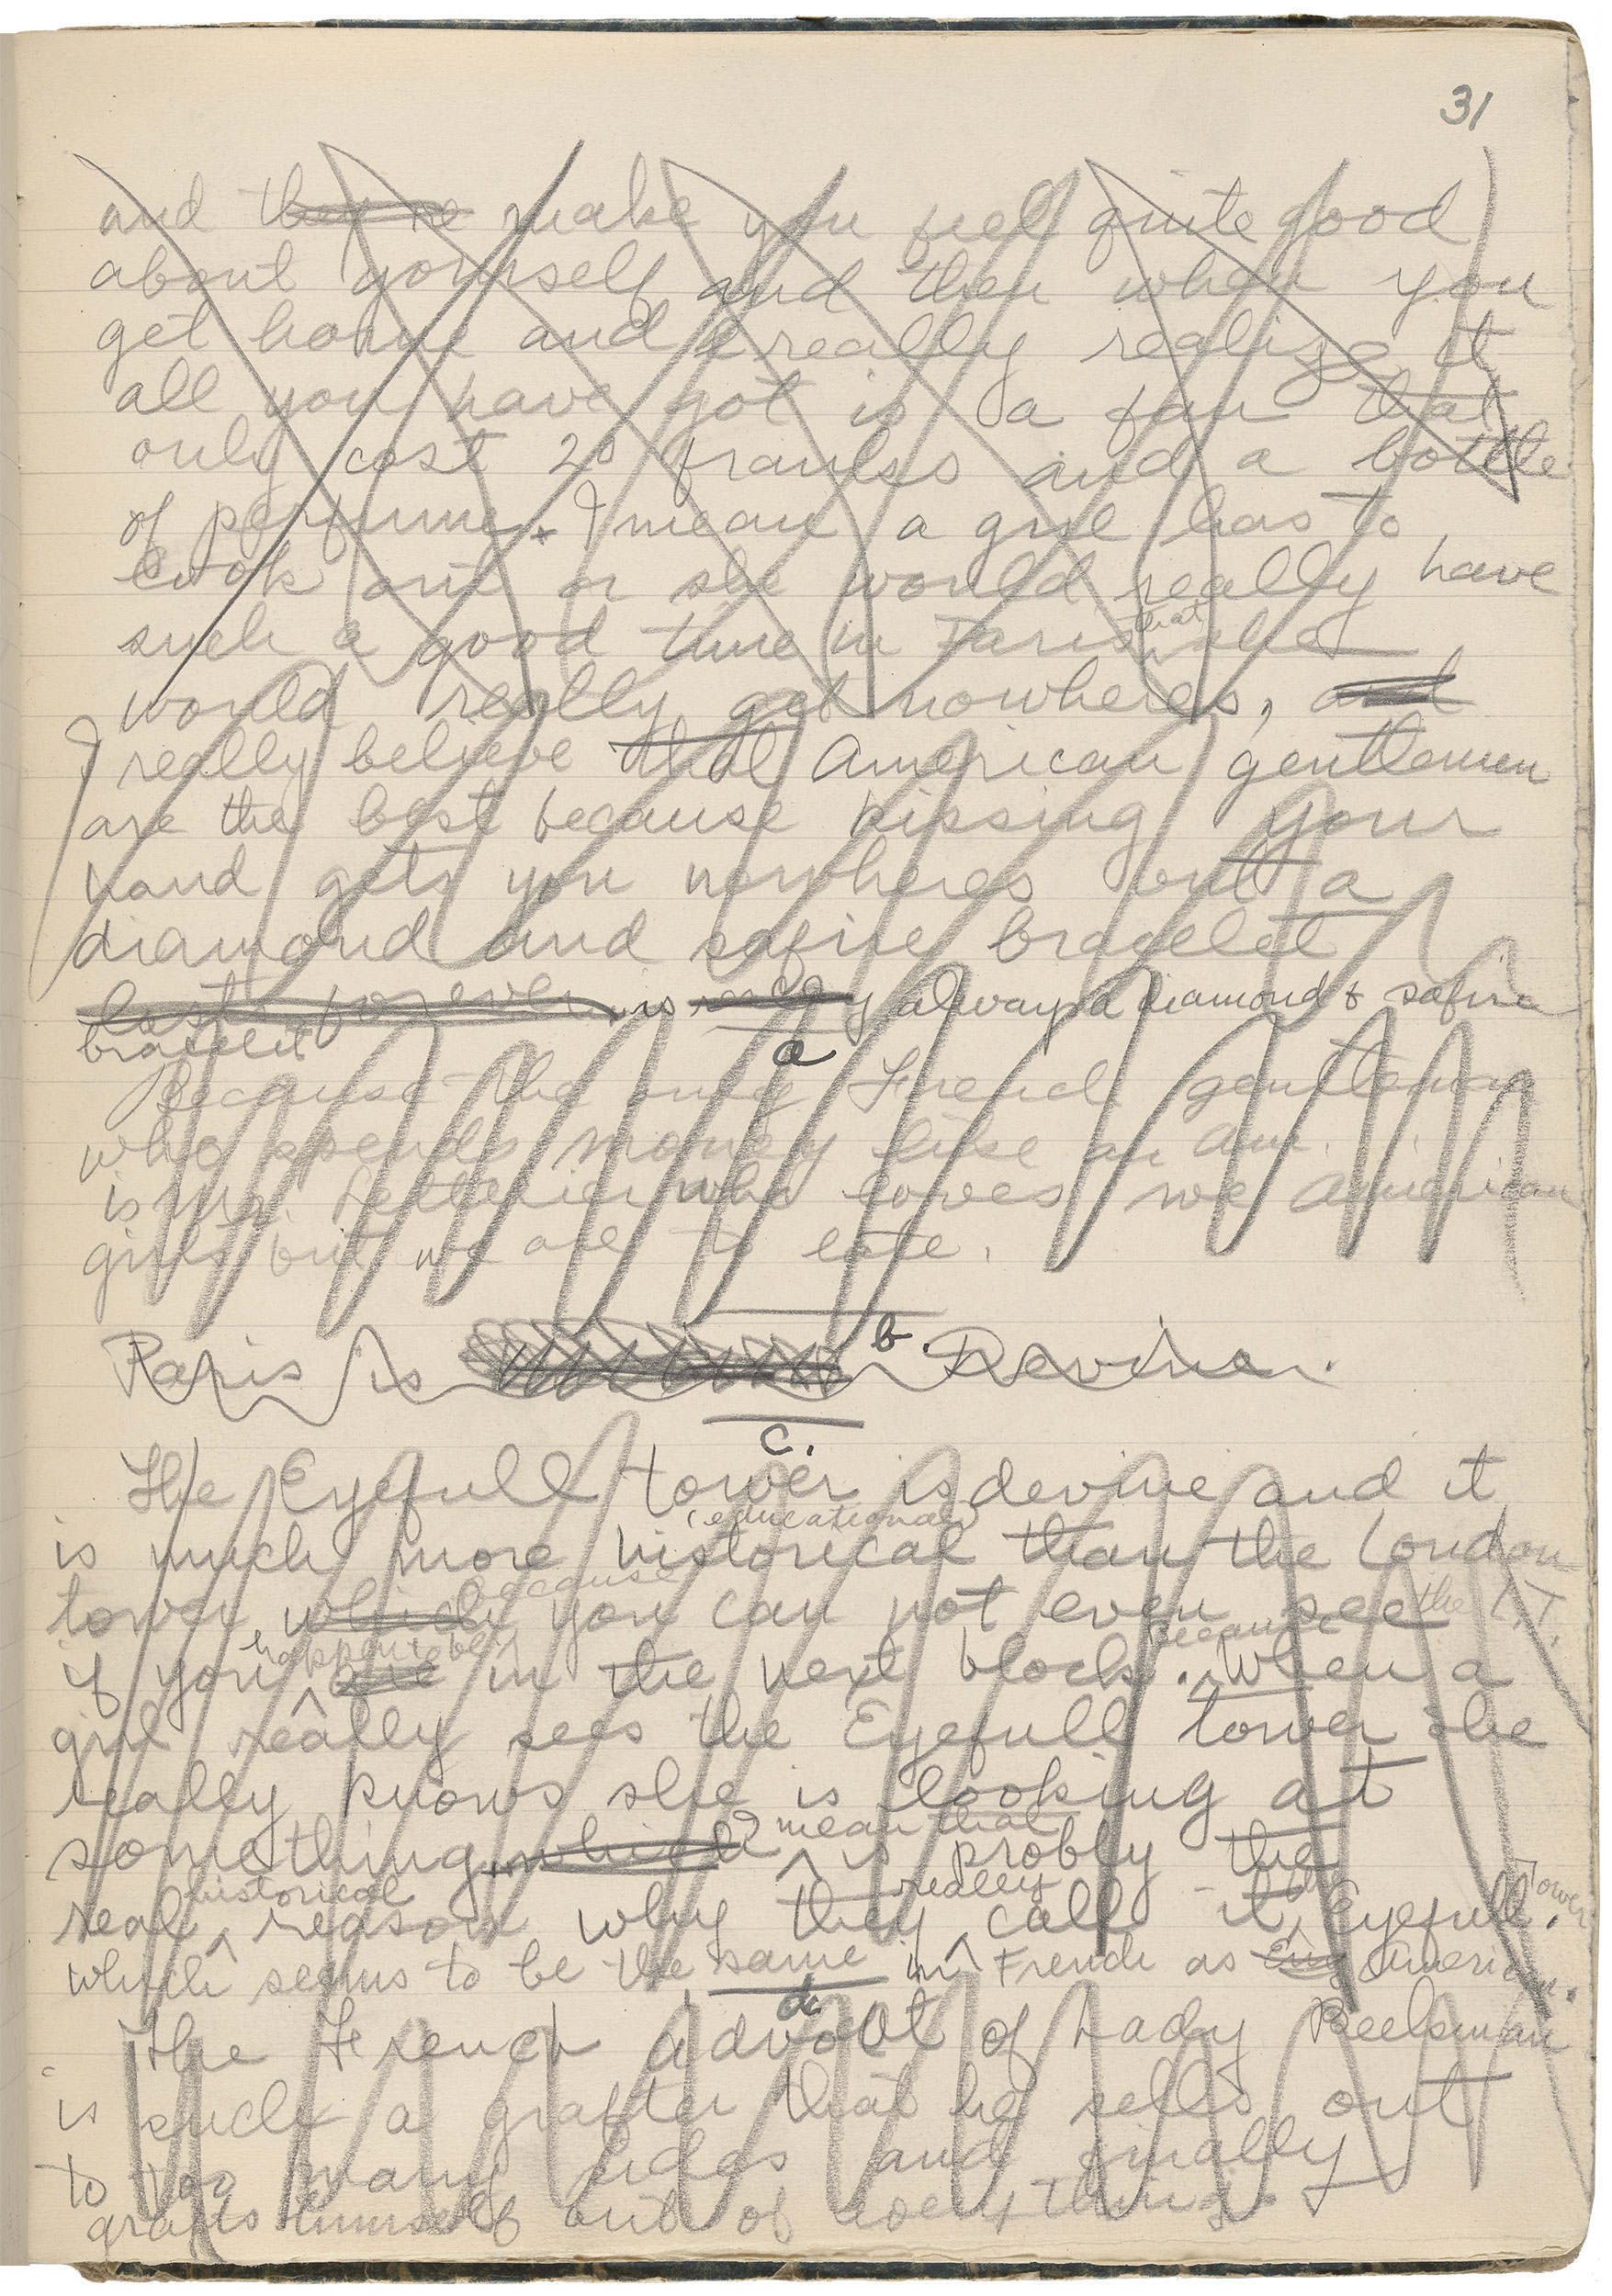 31
and they're make you feel quite good
about yourself and then when you
get home and really realize it
all you have got is a fan that
only cost 20 francs and a bottle
of perfume. I mean a girl has to
look out or she would really have
such a good time in Paris that she
would really get nowheres, and
I really believe that American gentlemen
are the best because kissing your
hand gets you nowheres but a
diamond and safire bracelet
last forever is always a diamond & safire
bracelet
a
Because the only French gentleman
who spends money like an Am.
is Mr. who loves we American
girls but we are to late.
b.
Paris is Devine.
c.
The Eyefull tower is devine and it
is much more historical (educational) than the London
tower which because you can not even see the L.T.
if you are happen to be in the next block. because When a
girl really sees the Eyefull tower she
really knows she is looking at
something which I mean that is probly the
real historical reason why they really call it the Eyefull Tower.
which seems to be the same in French as Eng American.
d
The French advocat of Lady Beekman
is such a grafter that he sells out
to too many sides and finally
grafts himself out of everything.